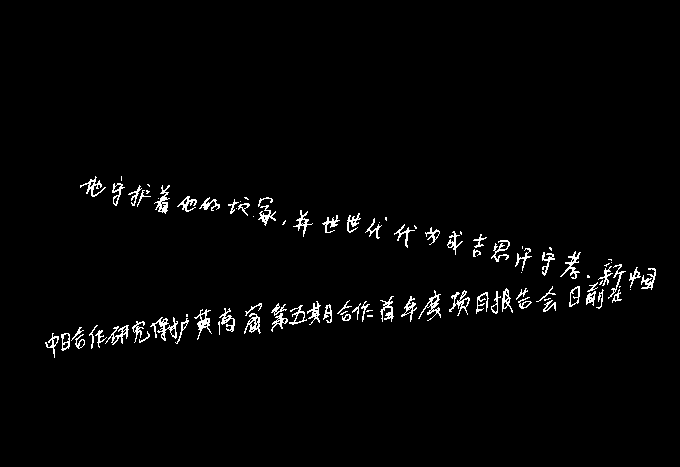 地守护着他的坟冢,并世世代代为成吉思汗守孝.新中国
中日合作研究保护莫高窟第五期合作首年度项目报告会日前在